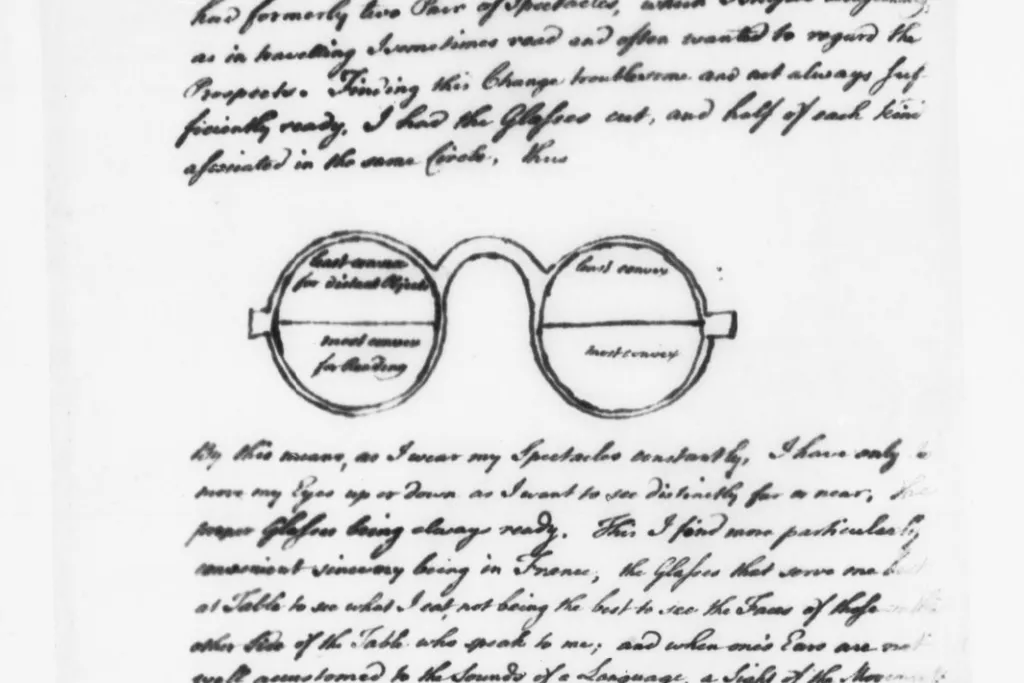 had formerly two Pair of Spectacles, which
as in travelling I sometimes read and often wanted to regard the
Prospects. Finding this Change troublesome and not always suf-
ficiently ready, I had the Glasses cut, and half of each kind
associated in the same Circle, thus
least convex
for distant Objects
least convex
most convex
for Reading
most convex
By this means, as I wear my Spectacles constantly, I have only
move my Eyes up or down as I want to see distinctly far or near, the
proper Glasses being always ready. This I find more particularly
convenient since my being in France, the Glasses that serve me best
at Table to see what I eat, not being the best to see the Faces of those
other Side of the Table who speak to me; and when one's Ears are not
well accustomed to the Sounds of a Language, a Sight of the